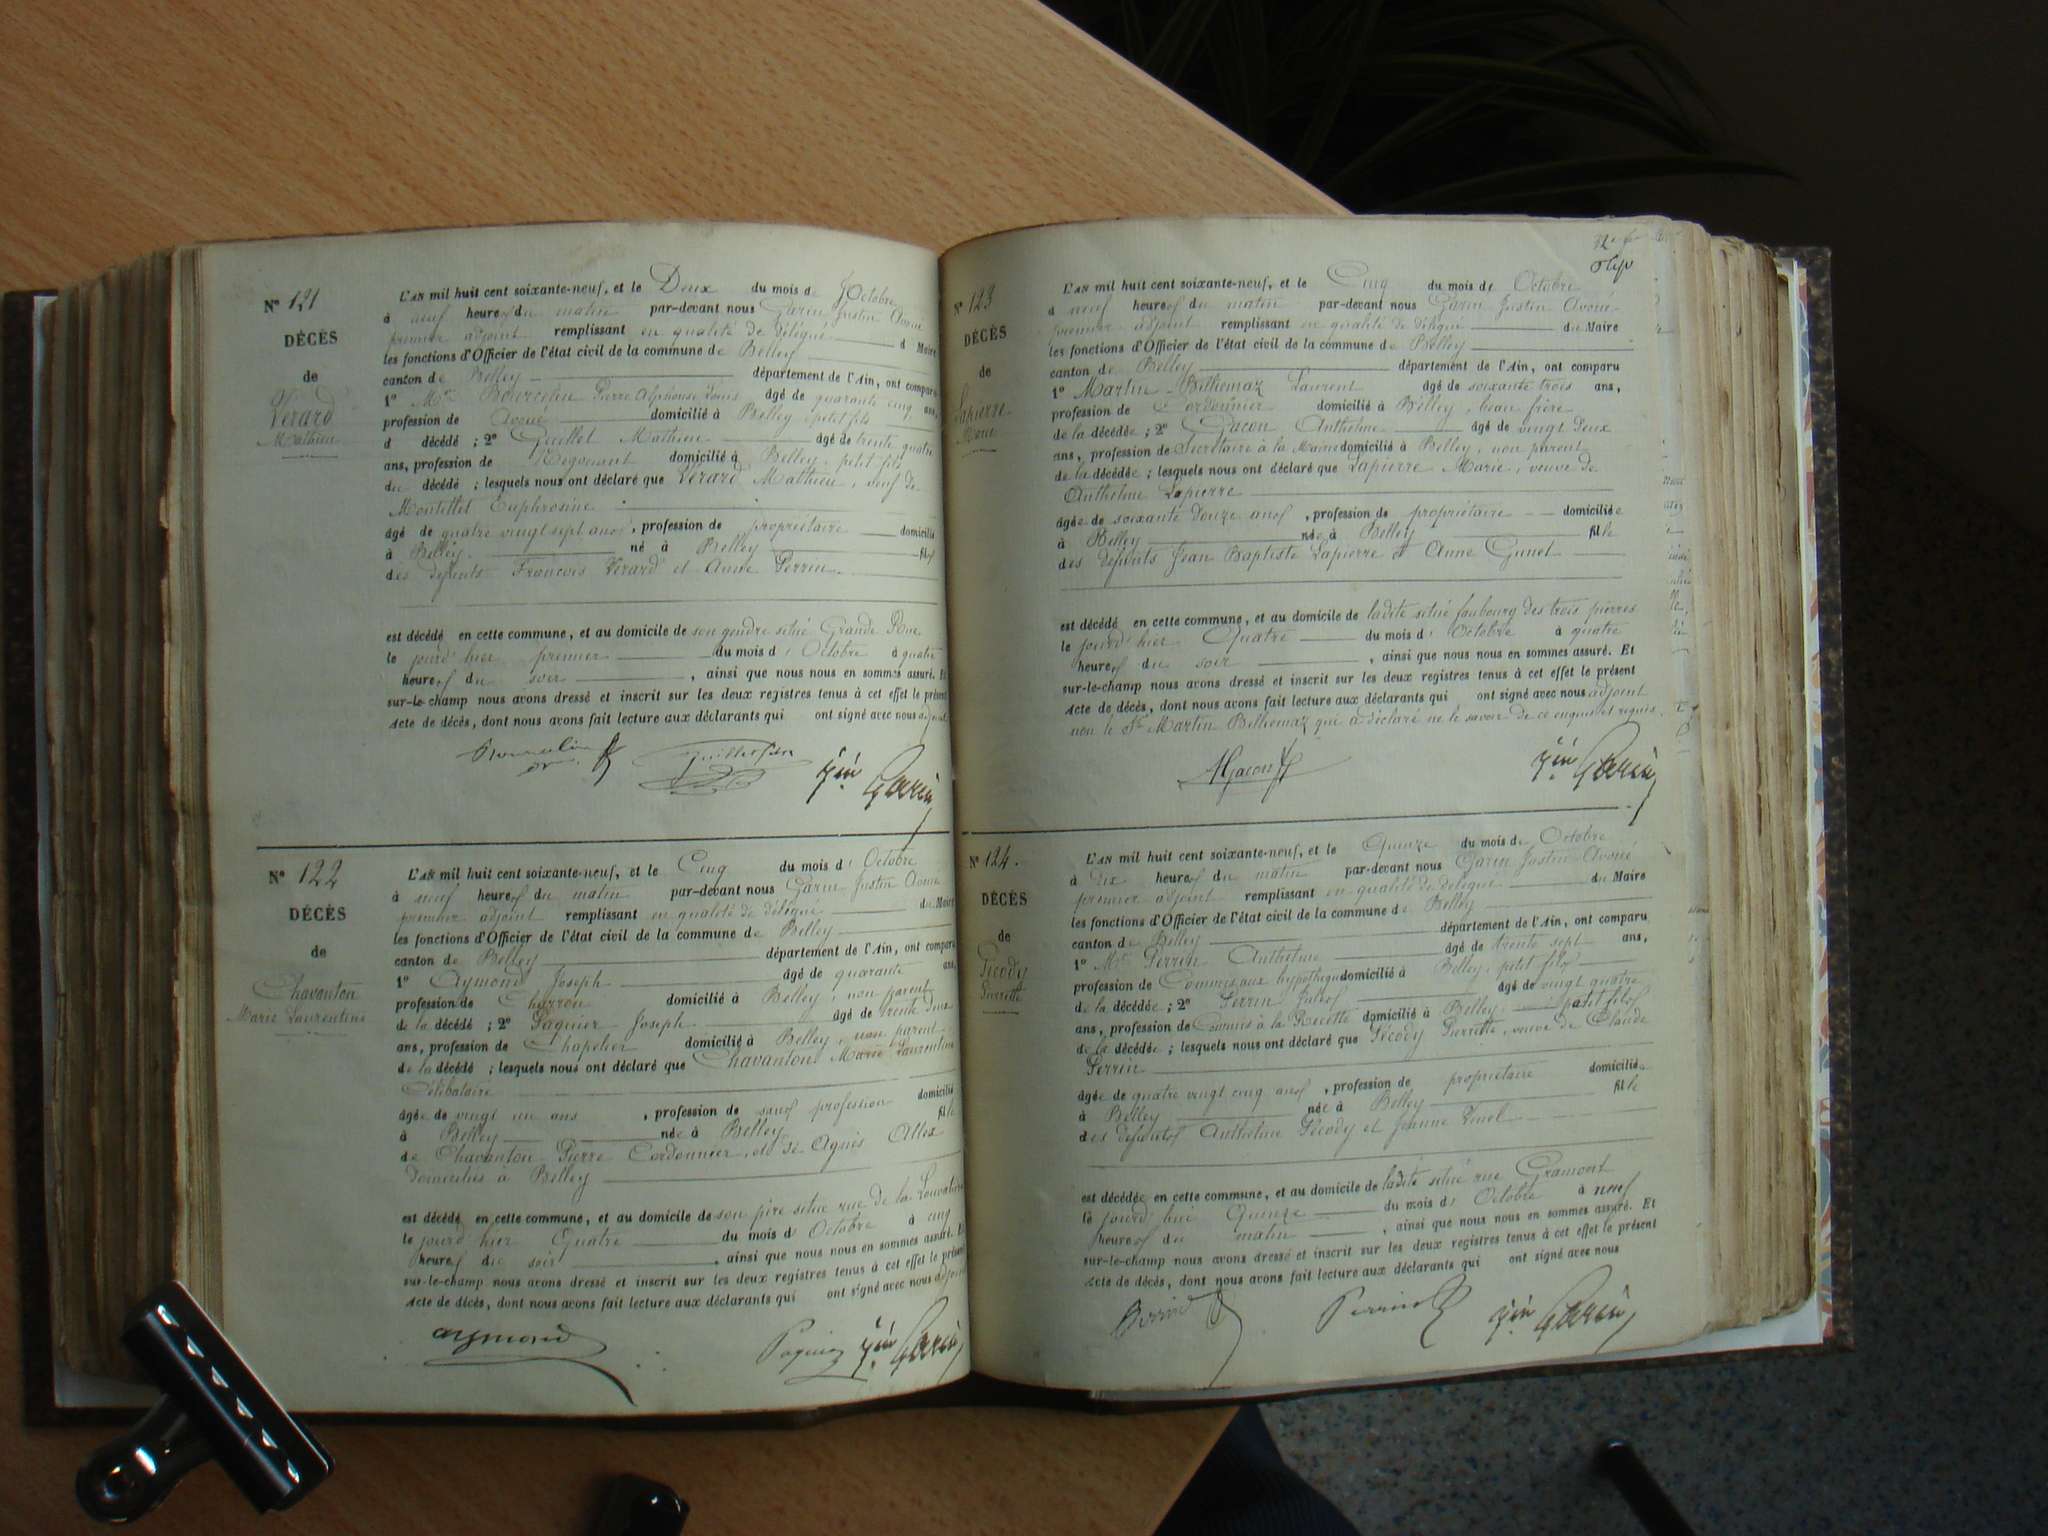 N° 121
DÉCÈS
de
Verard
Mathieu
L'AN mil huit cent soixante-neuf, et le Deux du mois d' Octobre
à neuf heures du matin par-devant nous Garin Justin Avoué
premier adjoint remplissant en qualité de délégué d Maire
les fonctions d'Officier de l'état civil de la commune de Belley
canton de Belley département de l'Ain, ont comparu
1° Mr Bourcelin Pierre Alphonse Louis âgé de quarante cinq ans,
profession de Avoué domicilié à Belley, petit fils
d décédé ; 2° Guillot Mathieu âgé de trente quatre
ans, profession de Négociant domicilié à Belley, petit fils
du décédé ; lesquels nous ont déclaré que Verard Mathieu, veuf de
Montillet Euphrosine
âgé de quatre vingt sept ans, profession de propriétaire domicilié
à Belley né à Belley fils
des défunts François Verard et Anne Perrin
est décédé en cette commune, et au domicile de son gendre situé Grande Rue
le jourd'hier premier du mois d' Octobre à quatre
heures du soir, ainsi que nous nous en sommes assuré. Et
sur-le-champ nous avons dressé et inscrit sur les deux registres tenus à cet effet le présent
acte de décès, dont nous avons fait lecture aux déclarants qui ont signé avec nous adjoint
Jin Garin
N° 122
DÉCÈS
de
Chavanton
Marie Laurentine
L'AN mil huit cent soixante-neuf, et le Cinq du mois d' Octobre
à neuf heures du matin par-devant nous Garin Justin Avoué
premier adjoint remplissant en qualité de délégué du Maire
les fonctions d'Officier de l'état civil de la commune de Belley
canton de Belley département de l'Ain, ont comparu
1° Aymond Joseph âgé de quarante ans,
profession de Charron domicilié à Belley, non parent
de la décédé ; 2° Paguier Joseph âgé de trente deux
ans, profession de Chapelier domicilié à Belley, non parent
de la décédé ; lesquels nous ont déclaré que Chavanton Marie Laurentine
Célibataire
âgée de vingt un ans, profession de sans profession domicilié
à Belley née à Belley fille
de Chavanton Pierre Cordonnier, et de Agnès Allex
domiciliés à Belley
est décédé en cette commune, et au domicile de son père située rue de la
le jourd'hier Quatre du mois d' Octobre à cinq
heures du soir, ainsi que nous nous en sommes assuré. Et
sur-le-champ nous avons dressé et inscrit sur les deux registres tenus à cet effet le présent
acte de décès, dont nous avons fait lecture aux déclarants qui ont signé avec nous adjoint
aymond Paguier Jin Garin
N° 123
DÉCÈS
de
Lapierre
Marie
L'AN mil huit cent soixante-neuf, et le Cinq du mois de Octobre
à neuf heures du matin par-devant nous Garin Justin Avoué
premier adjoint remplissant en qualité de délégué du Maire
les fonctions d'Officier de l'état civil de la commune de Belley
canton de Belley département de l'Ain, ont comparu
1° Martin-Belhemaz Laurent âgé de soixante trois ans,
profession de Cordonnier domicilié à Belley, beau frère
de la décédée ; 2° Gacon Anthelme âgé de vingt deux
ans, profession de Secrétaire à la Mairie domicilié à Belley, non parent
de la décédée ; lesquels nous ont déclaré que Lapierre Marie, veuve de
Anthelme Lapierre
âgée de soixante douze ans, profession de propriétaire domiciliée
à Belley née à Belley fille
des défunts Jean Baptiste Lapierre et Anne
est décédé en cette commune, et au domicile de ladite situé faubourg des trois pierres
le jourd'hier Quatre du mois d' Octobre à quatre
heures du soir, ainsi que nous nous en sommes assuré. Et
sur-le-champ nous avons dressé et inscrit sur les deux registres tenus à cet effet le présent
acte de décès, dont nous avons fait lecture aux déclarants qui ont signé avec nous adjoint
non le Sr Martin Belhemaz qui a déclaré ne le savoir de ce enquis et requis.
AGacon Jin Garin
N° 124.
DÉCÈS
de
Pécody
Pierrette
L'AN mil huit cent soixante-neuf, et le Quinze du mois de Octobre
à dix heures du matin par-devant nous Garin Justin Avoué
premier adjoint remplissant en qualité de délégué du Maire
les fonctions d'Officier de l'état civil de la commune de Belley
canton de Belley département de l'Ain, ont comparu
1° Mr Perrin Anthelme âgé de trente sept ans,
profession de Commis aux hypothèques domicilié à Belley, petit fils
de la décédée ; 2° Perrin Jules âgé de vingt quatre
ans, profession de Commis à la Recette domicilié à Belley, petit fils
de la décédée ; lesquels nous ont déclaré que Pécody Pierrette, veuve de Claude
Perrin
âgée de quatre vingt cinq ans, profession de propriétaire domiciliée
à Belley née à Belley fille
des défunts Anthelme Pécody et Jeanne
est décédée en cette commune, et au domicile de ladite situé rue Gramont
le jourd'hui Quinze du mois d' Octobre à neuf
heures du matin, ainsi que nous nous en sommes assuré. Et
sur-le-champ nous avons dressé et inscrit sur les deux registres tenus à cet effet le présent
acte de décès, dont nous avons fait lecture aux déclarants qui ont signé avec nous
Perrin Perrin Jin Garin